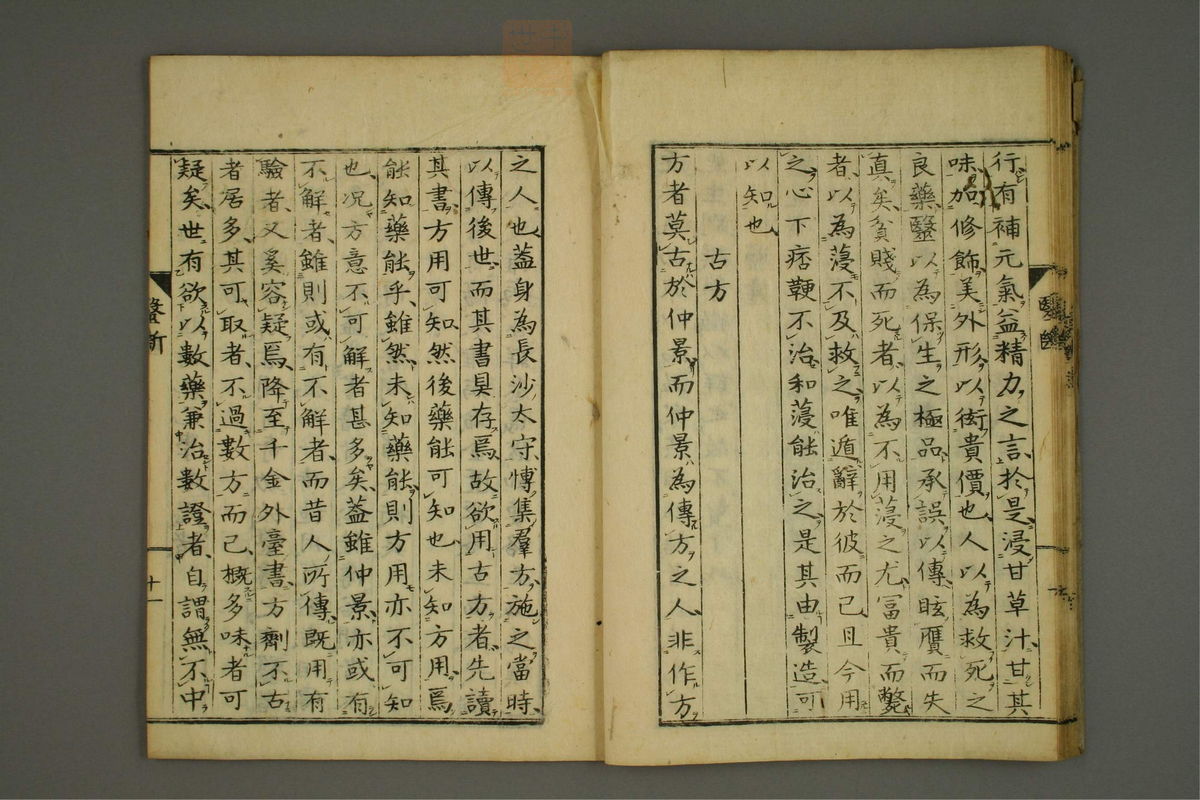 行有補元氣益精力之言於是浸甘草汁甘其
味加修飾美外形以衒貴價也人以為救死之
良藥醫以為保生之極品承誤以傳眩贋而失
真矣貧賤而死者以為不用蓡之尤冨貴而斃
者以為蓡不及救之唯遁辭於彼而已且今用
之心下痞鞕不治和蓡能治之是其由製造可
以知也
古方
方者莫古於仲景而仲景為傳方之人非作方
之人也蓋身為長沙太守愽集羣方施之當時
以傳後世而其書具存焉故欲用古方者先讀
其書方用可知然後藥能可知也未知方用焉
能知藥能乎雖然未知藥能則方用亦不可知
也况方意不可解者甚多矣蓋雖仲景亦或有
不解者雖則或有不解者而昔人所傳既用有
驗者又奚容疑焉降至千金外臺書方劑不古
者居多其可取者不過數方而已概多味者可
疑矣世有欲以數藥兼治數證者自謂無不中
醫斷
十一